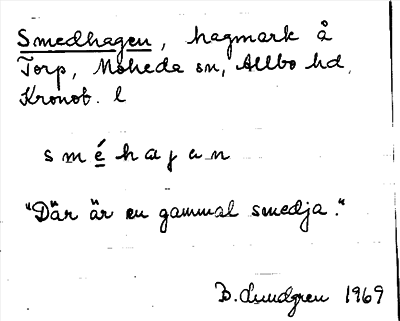 Smedhagen, hagmark å
Torp, Moheda sn, Allbo hd,
Kronob. l
sméhagan
"Där är en gammal smedja."
B. Lundgren 1969